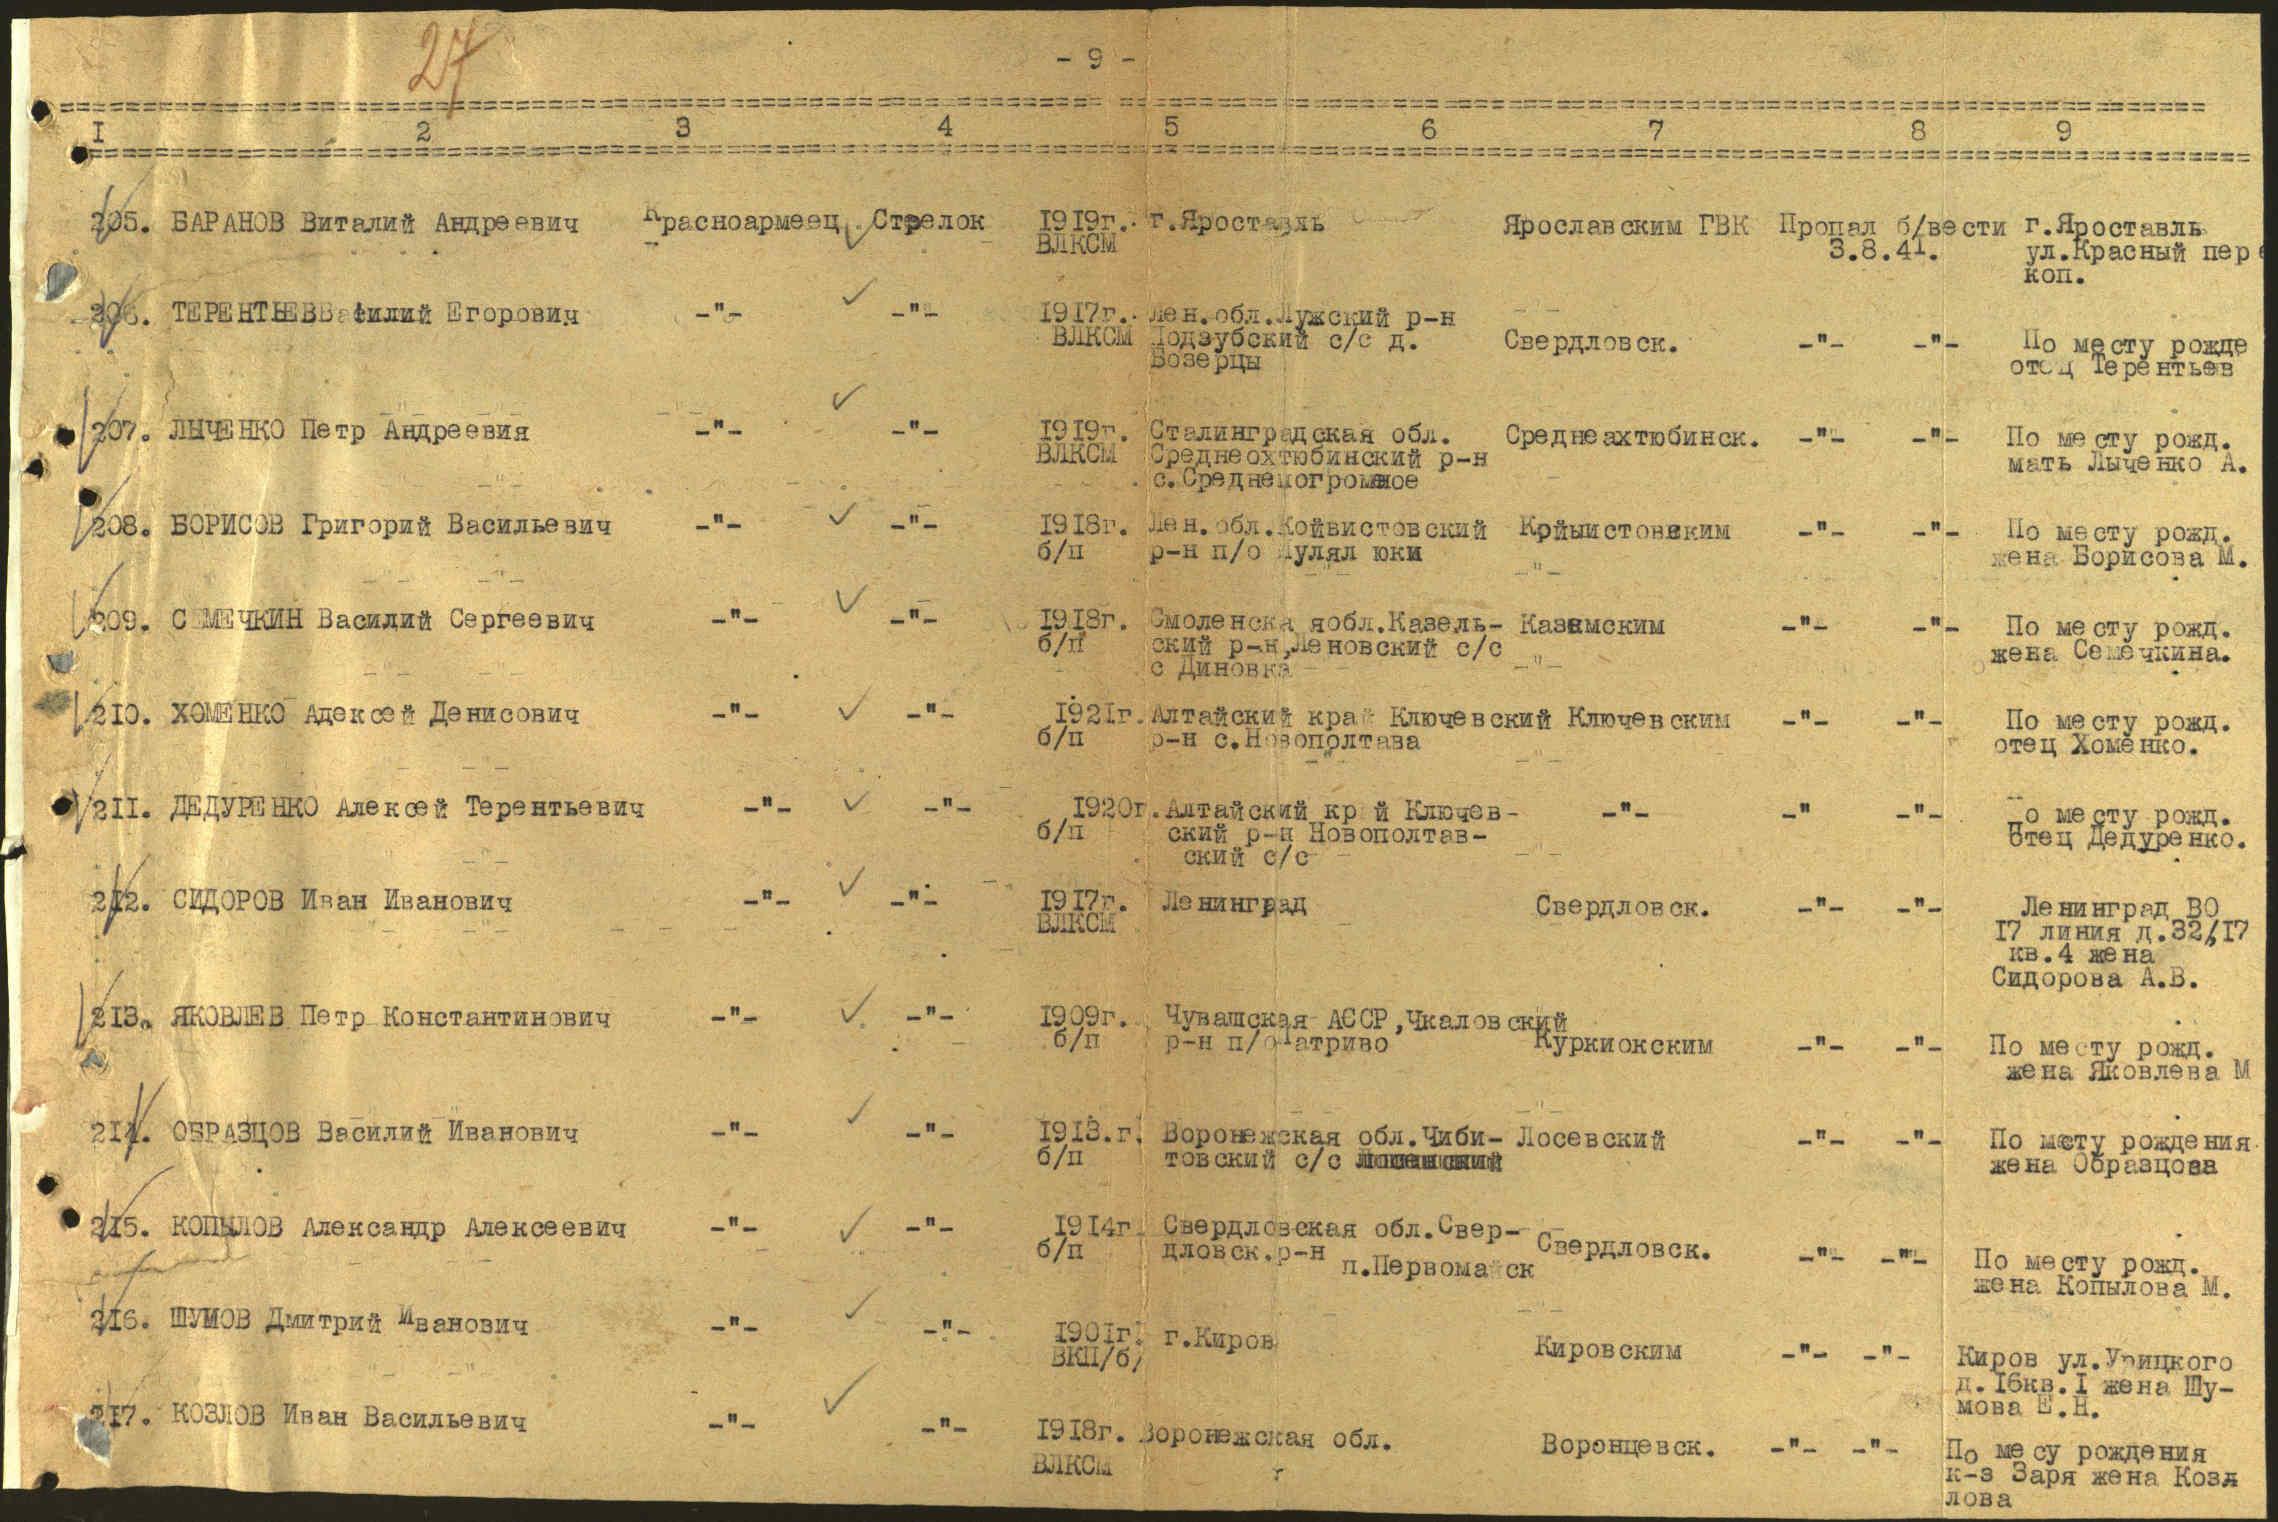 27
- 9 -
I 2 3 4 5 6 7 8 9
205. БАРАНОВ Виталий Андреевич Красноармеец Стрелок 1919г. г.Яроставль Ярославским ГВК Пропал б/вести г.Яроставль
ВЛКСМ 3.8.41. ул.Красный пере
коп.
206. ТЕРЕНТЬЕВ Василий Егорович -"- -"- 1917г. Лен.обл.Лужский р-н
ВЛКСМ Подзубский с/с д. Свердловск. -"- -"- По месту рожде
Возерцы отец Терентьев
207. ЛЫЧЕНКО Петр Андреевия -"- -"- 1919г. Сталинградская обл. Среднеахтюбинск. -"- -"- По месту рожд.
ВЛКСМ Среднеохтюбинский р-н мать Лыченко А.
с.Среднемогромное
208. БОРИСОВ Григорий Васильевич -"- -"- 1918г. Лен.обл.Койвистовский Койыистовским -"- -"- По месту рожд.
б/п р-н п/о юки жена Борисова М.
209. СЕМЕЧКИН Василий Сергеевич -"- -"- 1918г. Смоленска яобл.Казель- Казамским -"- -"- По месту рожд.
б/п ский р-н,Леновский с/с жена Семечкина.
с Диновка
210. ХОМЕНКО Адексей Денисович -"- -"- 1921г. Алтайский край Ключевский Ключевским -"- -"- По месту рожд.
б/п р-н с.Новополтава отец Хоменко.
211. ДЕДУРЕНКО Алексей Терентьевич -"- -"- 1920г. Алтайский кр й Ключев- -"- -" -"- По месту рожд.
б/п ский р-н Новополтав- Отец Дедуренко.
ский с/с
212. СИДОРОВ Иван Иванович -"- -"- 1917г. Ленинград Свердловск. -"- -"- Ленинград ВО
ВЛКСМ 17 линия д.32/17
кв.4 жена
Сидорова А.В.
213. ЯКОВЛЕВ Петр Константинович -"- -"- 1909г. Чувашская АССР,Чкаловский
б/п р-н п/о Патриво Куркиокским -"- -"- По месту рожд.
жена Яковлева М
214. ОБРАЗЦОВ Василий Иванович -"- -"- 1913.г. Воронежская обл.Чиби- Лосевский -"- -"- По месту рождения
б/п товский с/с жена Образцова
215. КОПЫЛОВ Александр Алексеевич -"- -"- 1914г Свердловская обл.Свер- Свердловск.
б/п дловск.р-н п.Первомайск -"- -"- По месту рожд.
жена Копылова М.
216. ШУМОВ Дмитрий Иванович -"- -"- 1901г. г.Киров Кировским -"- -"- Киров ул.Урицкого
ВКП/б/ д.16кв.1 жена Шу-
мова Е.Н.
217. КОЗЛОВ Иван Васильевич -"- -"- 1918г. Воронежская обл. Воронцевск. -"- -"- По месу рождения
ВЛКСМ к-з Заря жена Козл
лова